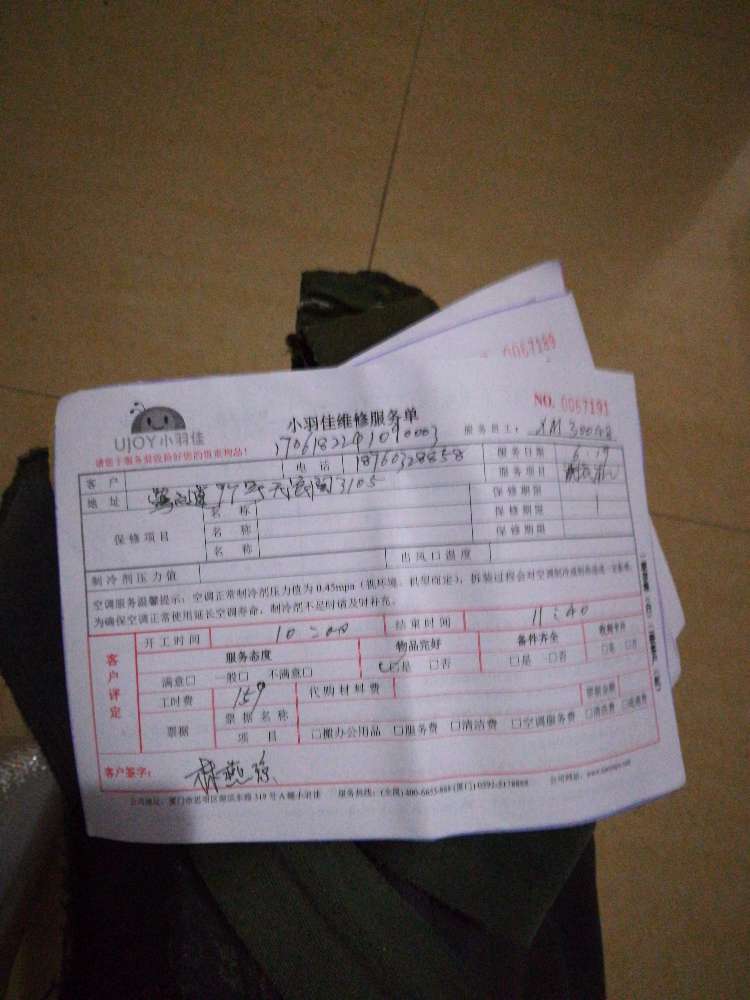 0067189
NO. 0067191
UJOY小羽佳
小羽佳维修服务单
服务员工: XM30048
请您于服务前收拾好您的贵重物品!
客户 电话 18760328858 服务日期 6.19
地址 97号天湖阁3105 服务项目
保修项目 名称 保修期限
名称 保修期限
名称 保修期限
制冷剂压力值 出风口温度
空调服务温馨提示:空调正常制冷剂压力值为0.45mpa
为确保空调正常使用延长空调寿命,制冷剂不足时请及时补充。
开工时间 10:00 结束时间 11:40
客户评定
服务态度 物品完好 备件齐全
满意□ 一般□ 不满意□ □是 □否 □是 □否 □是 □否
工时费 159 代购材料费
票据 票据名称 票据金额
项目 □搬办公用品 □服务费 □清洁费 □空调服务费
客户签字: 林燕琼
公司地址:厦门市思明区 319号A 服务热线:(全国)400-6655-888 (厦门)0592-5178888 公司网址: